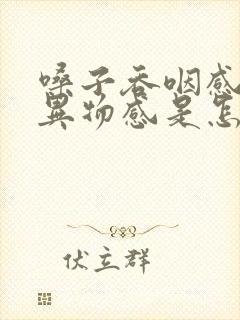 嗓子吞咽感
异物感是怎
伏立群